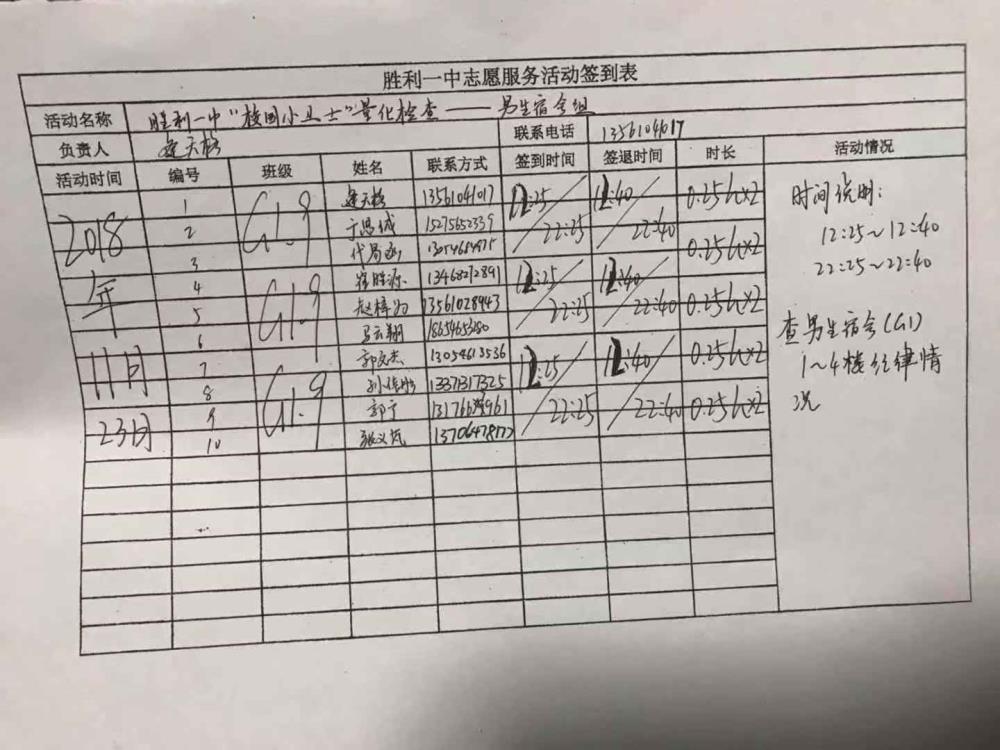 胜利一中志愿服务活动签到表
活动名称 胜利一中"校园小卫士"量化检查——男生宿舍组
负责人 联系电话 13561041017
活动时间 编号 班级 姓名 联系方式 签到时间 签退时间 时长 活动情况
2018年11月23日
G1.9
1 13561041017 12:25 12:40 0.25h×2
2 于思诚 15275652339 22:25 22:40
3 0.25h×2
4 崔胜源 13468272891 12:25 12:40
G1.9
5 13561028943 22:25 22:40 0.25h×2
6 马云翔
7 郭文杰 13054613536 12:25 12:40 0.25h×2
G1.9
8 13371317325
9 郭宁 22:25 22:40 0.25h×2
10 张义岚 13706478177
时间说明:
12:25~12:40
22:25~22:40
查男生宿舍(G1)
1~4楼纪律情
况